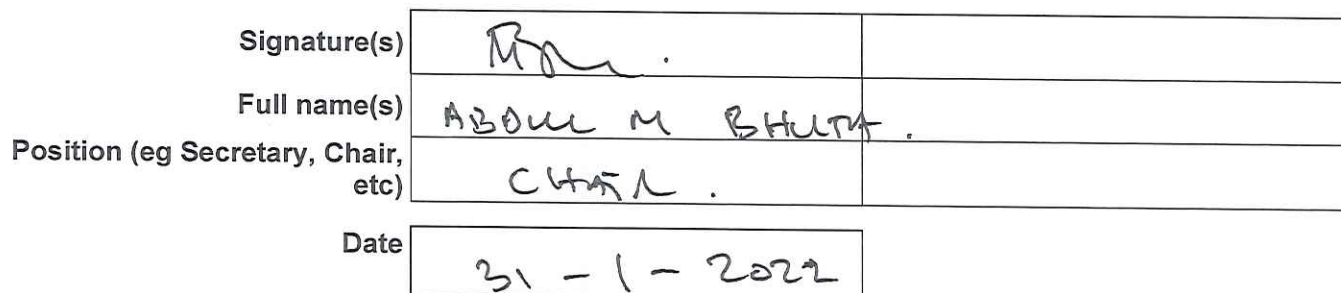 Signature(s)
Full name(s) ABDUL M BHUTA.
Position (eg Secretary, Chair,
etc) CHAIR.
Date 31 - 1 - 2022